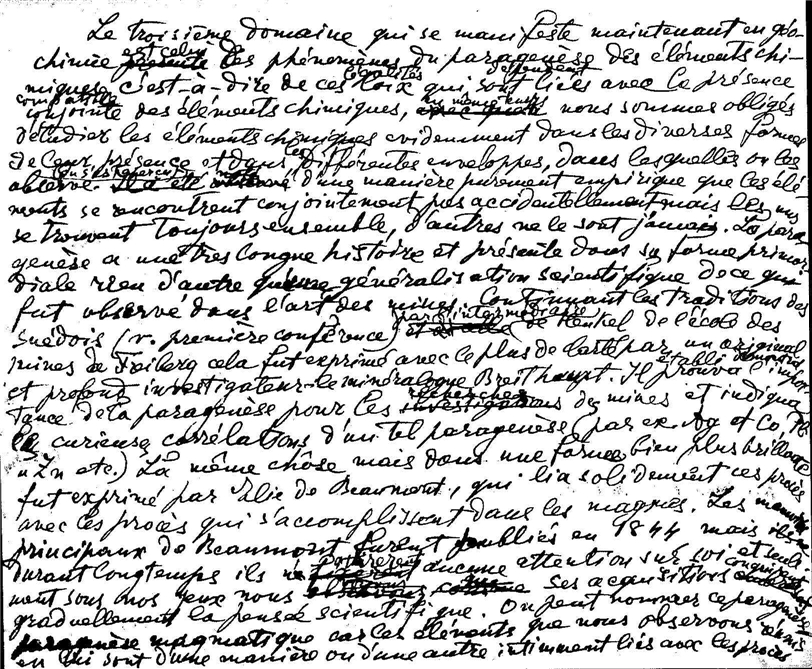 Le troisième domaine qui se manifeste maintenant en géo-
chimie est celui des phénomènes du paragenèse des éléments chi-
miques, c'est-à-dire de ces loix qui sont liés avec la présence
conjointe des éléments chimiques, en même temps nous sommes obligés
d'étudier les éléments chimiques evidemment dans les diverses formes
de leur présence et dans différentes enveloppes, dans lesquelles on les
observe. d'une manière purement empirique que les élé
ments se rencontrent conjointement pas accidentellement mais les uns
se trouvent toujours ensemble, d'autres ne le sont jamais. La para
genèse a une très longue histoire et présente dans sa forme primor
diale rien d'autre qu'une généralisation scientifique de ce qui
fut observé dans l'art des mines. Continuant les traditions des
suédois (v. première conférence) par l'intermédiaire de Henkel de l'école des
mines de Freiberg cela fut exprimé avec le plus de clarté par un original
et profond investigateur-le minéralogue Breithaupt. Il prouva l'impor
tance de la paragenèse pour les recherches des mines et indiqua
curieuse corrélations d'un tel paragenèse (par ex. Ag et Co, Pb
u Zn etc.) La même chose mais dans une forme bien plus brillante
fut exprimé par Elie de Beaumont, qui lia solidement ces procès
avec les procès qui s'accomplissent dans les magmas. Les
principaux de Beaumont furent publiés en 1844 mais
durant longtemps ils aucune attention sur soi et seul
ment sous nos yeux nous ses acquisitions
graduellement la pensée scientifique. On peut nommer ce paragenèse
paragenèse magmatique car les éléments que nous observons réunis
en lui sont d'une manière ou d'une autre intimment liés avec les procès